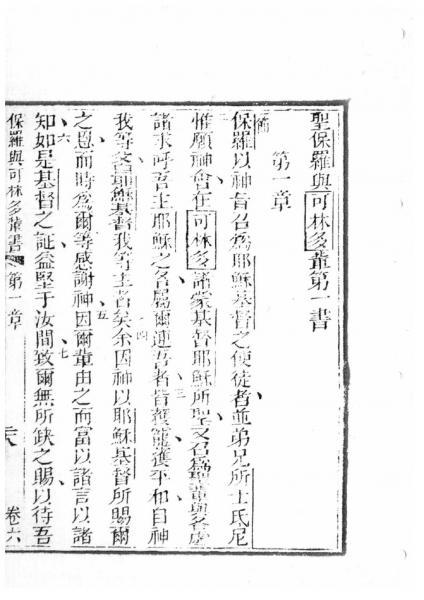 聖保羅與可林多輩第一書
第一章
保羅以神旨召為耶穌基督之使徒者並弟兄所士氏尼
惟願神會在可林多諸蒙基督耶穌所聖又召為聖輩與各處
諸求呼吾主耶穌之名屬爾連吾者皆獲寵獲平和自神
我等父吾主耶穌基督我等主者矣余因神以耶穌基督所賜爾
之恩而時為爾等感謝神因爾輩由之而富以諸言以諸
知如是基督之証益堅于汝間致爾無所缺之賜以待吾
保羅與可林多輩書 第一章 卷六